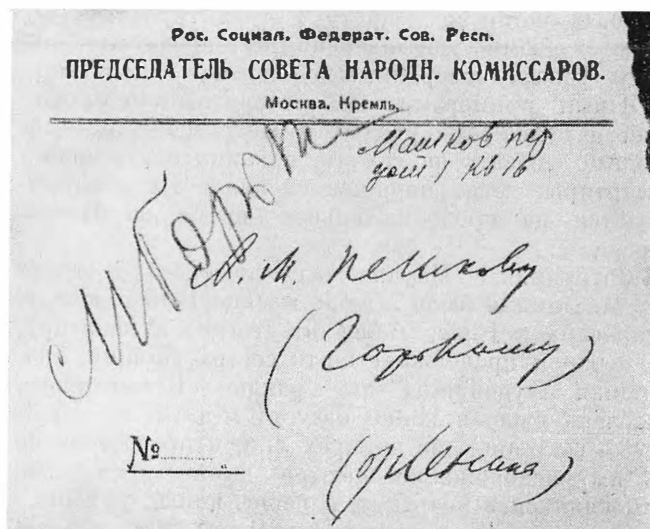 Рос. Социал. Федерат. Сов. Респ.
ПРЕДСЕДАТЕЛЬ СОВЕТА НАРОДН. КОМИССАРОВ.
Москва. Кремль.
Машков пер
дом 1 кв 16
А. М. Пешкову
(Горькому)
№
(от Ленина)